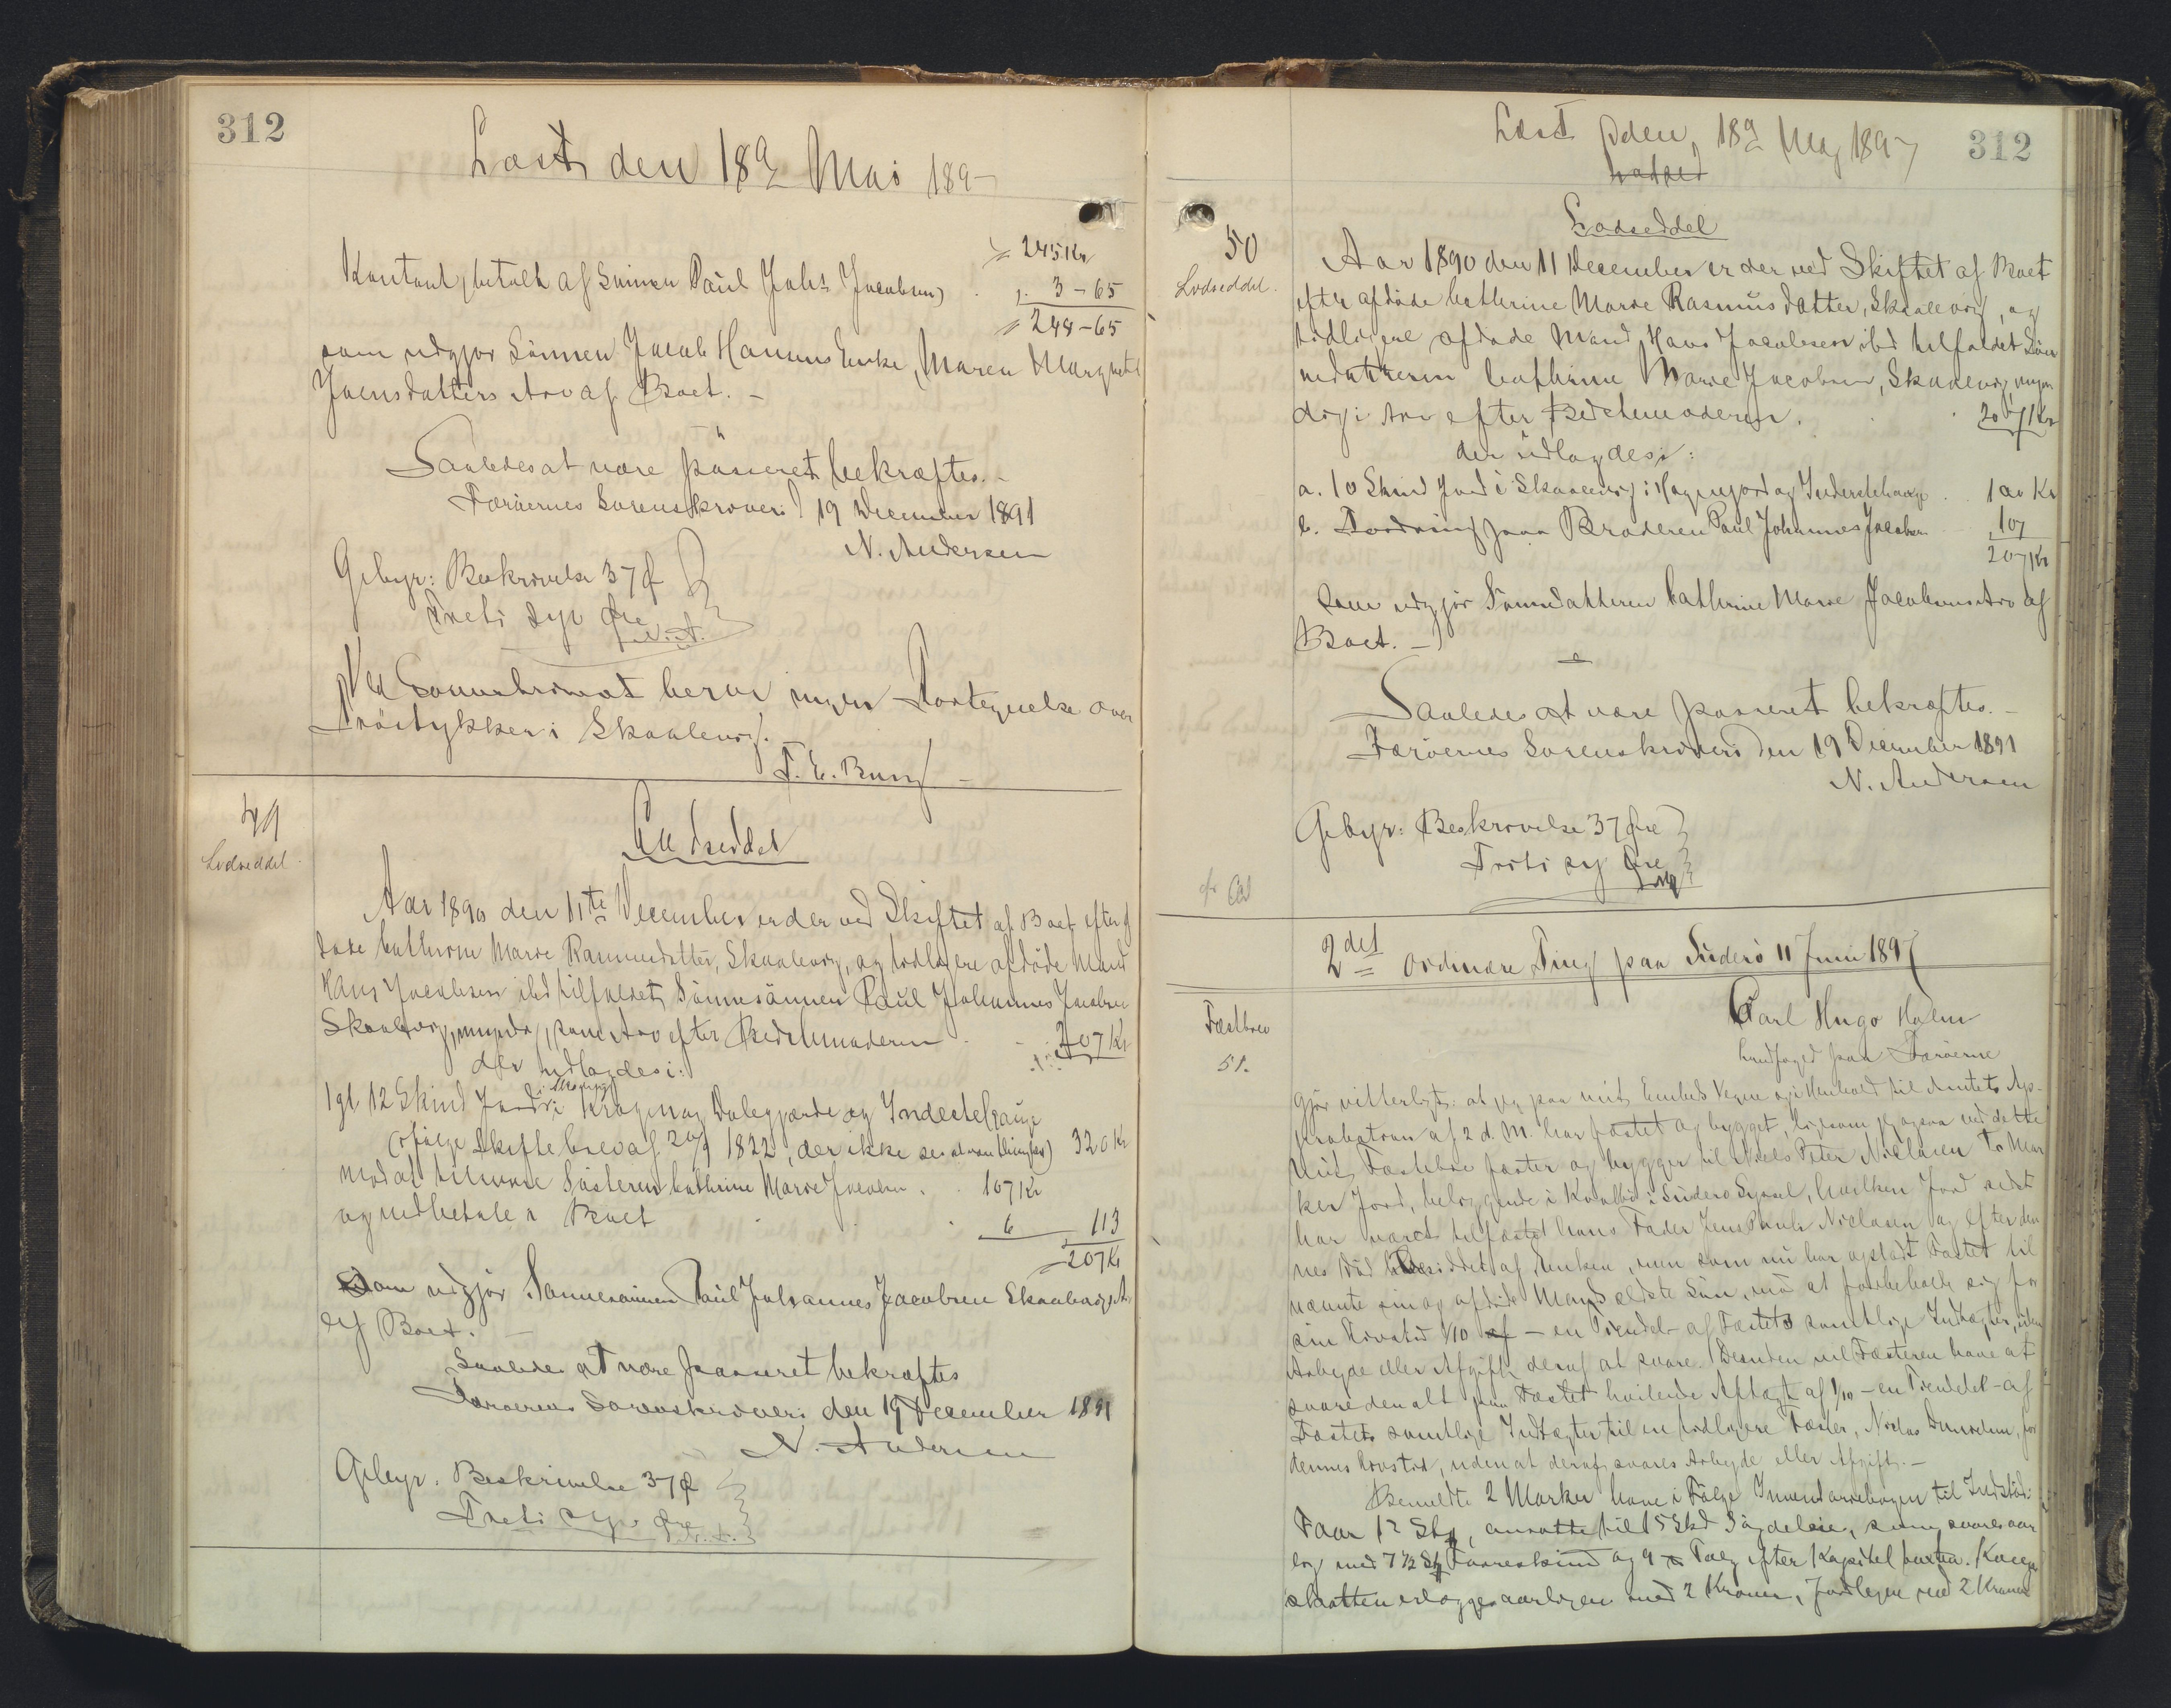 312
Læst den 18 Mai 189
245 Kr
Kontant betalt af Sönnen Paul Johs Jacobsen 3-65
248-65
som udgjör Sönnen Jacob Hanuns Enke, Maren Margrethe
Joensdatters Arv af Boet. -
Saaledes at være passeret bekræftes. -
Færöernes Sorenskriveri 19 December 1891
N. Andersen
Gebyr: Beskrivelse 37 Ø
Treti syv Øre
N. A.
Ved Conventionat beror ingen Fortegnelse over
Tröstykker i Skaalevig.
49
Lodseddel
Lodseddel
Aar 1890 den 11te December er der ved Skiftet af Boet efter af
döde Cathrine Marie Rasmusdatter, Skaalevig, og tidligere afdöde Mand
Hans Jacobsen ibd tilfaldet Sönnesönnen Paul Johannes Jacobsen
Skaalevig, myndig, som Arv efter Bedstemoderen 207 Kr
der udlagdes i:
1gl 12 Skind Jord i Krogen og Dalegjærde og Inderstehauge
(ifölge Skiftebrev af 20/9 1822, der ikke ses at være thinglæst) 320 Kr
mod at tilsvare Sösteren Cathrine Marie Jacobsen 107 Kr
og indbetale i Boet 6 113
207 Kr
Som udgjör Sönnesönnen Paul Johannes Jacobsen Skaalevigs Arv
af Boet. -
Saaledes at være passeret bekræftes
Færöernes Sorenskriveri den 19 December 1891
N. Andersen
Gebyr: Beskrivelse 37 Ø
Treti syv Øre
N. A.
Læst den 18 Maj 1897
312
50
Lodseddel.
Lodseddel
Aar 1890 den 11 December er der ved Skiftet af Boet
efter afdöde Cathrine Marie Rasmusdatter, Skaalevig, og
tidligere afdöde Mand Hans Jacobsen ibd tilfaldet Sön
nedatteren Cathrine Marie Jacobsen, Skaalevig, umyn
dig i Arv efter Bedstemoderen. 207 Kr
der udlagdes i:
a. 10 Skind Jord i Skaalevig i Hagengjord og Inderstehauge 100 Kr
b. Fordring paa Broderen Paul Johannes Jacobsen 107
207 Kr
Som udgjör Sönnedatteren Cathrine Marie Jacobsens Arv af
Boet. -
Saaledes at være passeret bekræftes. -
Færöernes Sorenskriveri den 19 December 1891
N. Andersen
Gebyr: Beskrivelse 37 Øre
Treti syv Øre
2det ordinære Ting paa Suderö 11 Juni 1897
Fæstbrev
51.
Carl Hugo Holm
Landfoged paa Færöerne
Gjör vitterligt: at jeg paa mit Embeds Vegne og i Henhold til Amtets Ap-
probation af 2 d. M. har fæstet og bygget, ligesom jeg ogsaa ved dette
mit Fæstebrev fæster og bygger til Niels Peter Niclasen to Mar
ker Jord, beliggende i Kvalbö i Suderö Syssel, hvilken Jord sidst
har været tilfæstet hans Fader Jens Paul Niclasen og efter den
nes Död besiddet af Enken, men som nu har opstadt Fæstet til
nævnte sin og afdöde Mands ældste Sön, mod at forbeholde sig for
sin Livstid 1/10 - en Tiendel - af Fæstets samtlige Indtægter, uden
Arbejde eller Afgift deraf at svare. Desuden vil Fæsteren have at
svare den alt paa Fæstet hvilende Aftægt af 1/10 - en Tiendedel - af
Fæstets samtlige Indtægter til en tidligere Fæster, Niclas, for
dennes Livstid, uden at deraf svares Arbejde eller Afgift. -
Bemeldte 2 Marker have i Fölge Inventariebogen til Indstöd:
Faar 12 Stk, ansatte til 15 Skd Sögdeleie, som svares aar
lig med 7 1/2 Stk Faareskind og 9 Talg efter Kapitelstaxten. Konge
skatten erlægges aarligen med 2 Kroner, Jordlejen med 2 Kroner